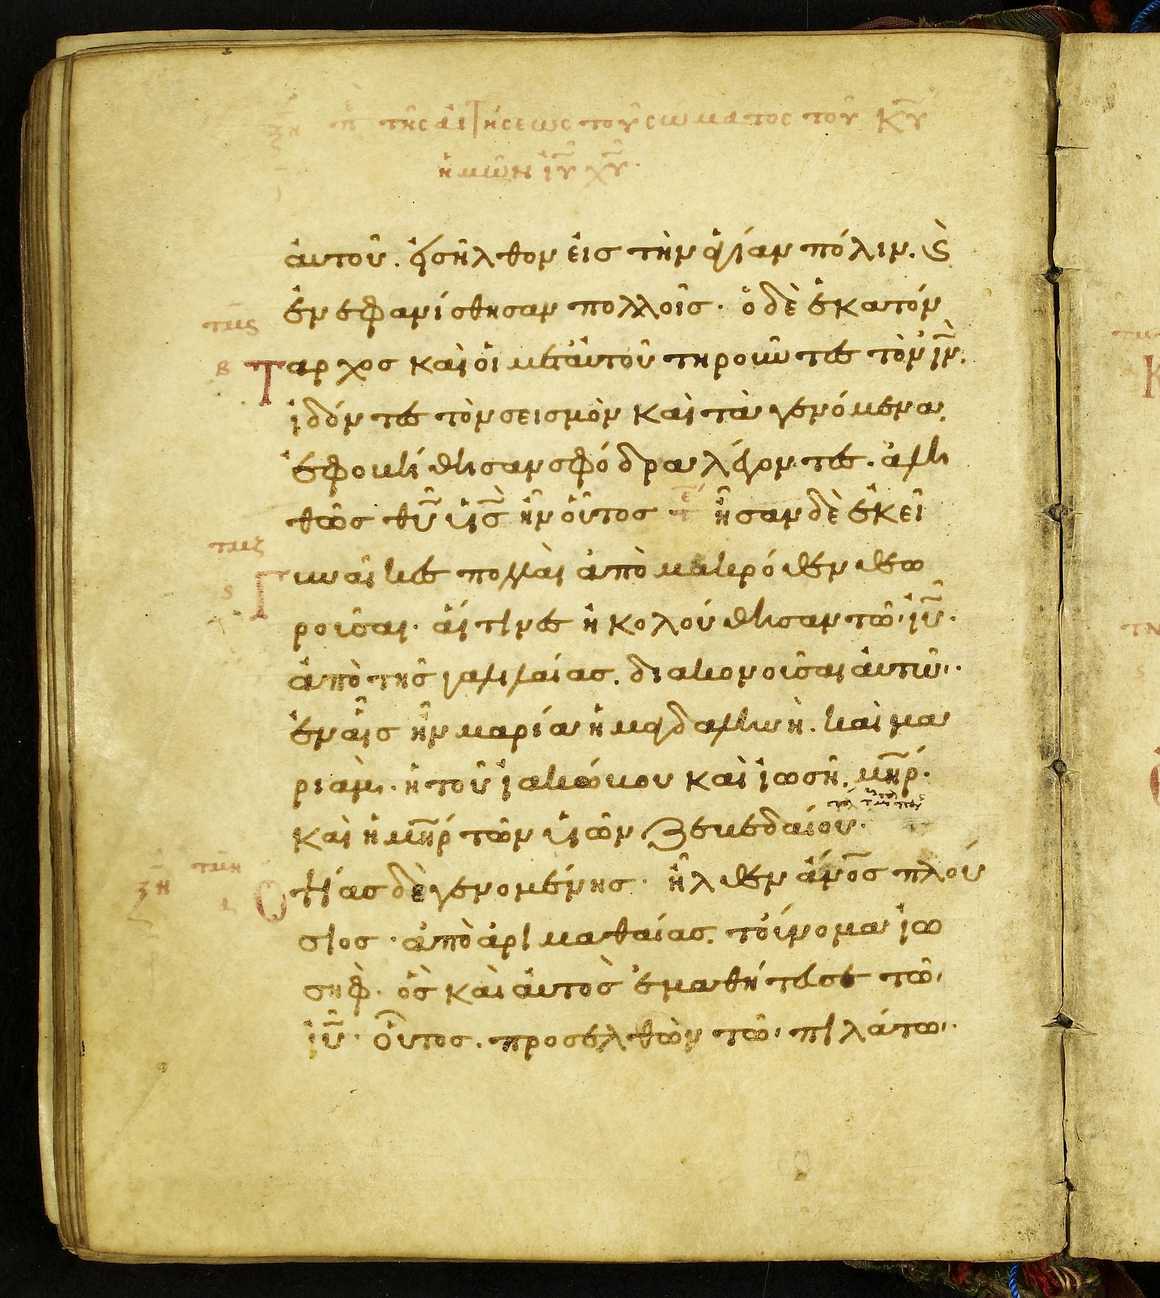 ξη π τῆς αἰτήσεως τοῦ σώματος τοῦ κ̅υ̅
ἡμῶν ἰ̅υ̅ χ̅υ̅·
ἀυτοῦ. ἐισῆλθον ἐις τὴν ἁγίαν πόλιν. ϗ
ἐνεφανίσθησαν πολλοῖς· ὁ δὲ ἑκατόν
τμϛ
β Ταρχος καὶ ὁι μετ ἀυτοῦ τηροῦντες τὸν ἰ̅ν̅.
ἰδόντες τὸν σεισμὸν καὶ τὰ γενόμενα,
ἐφοβήθησαν σφόδρα λέγοντες. ἀλη
θῶς θ̅υ̅ ὑ̅ς̅ ἦν ὁῦτος τε ἦσαν δὲ ἐκεῖ
τμζ
ϛ Γυναῖκες πολλαὶ ἀπὸ μακρόθεν θεω
ροῦσαι· ἅιτινες ἠκολούθησαν τῶ ἰ̅υ̅·
ἀπὸ τῆς γαλιλαίας. διακονοῦσαι ἀυτῶ·
ἐν ἁῖς ἦν μαρία ἡ μαγδαληνὴ. καὶ μα
ριὰμ· ἡ τοῦ ἰακώβου καὶ ἰωσῆ. μ̅η̅ρ̅·
καὶ ἡ μ̅η̅ρ̅ τῶν ὑιῶν ζεβεδαίου·
τμη
ξη ι Ὀψίας δὲ γενομένης· ἦλθεν ἄ̅ν̅ο̅ς̅ πλού
σιος· ἀπὸ ἀριμαθαίας. τοὔνομα ἰω
σήφ· ὃς καὶ ἀυτὸς ἐμαθήτευσε τῶ
ἰ̅υ̅· Ὁῦτος. προσελθὼν τῶ πιλάτω·